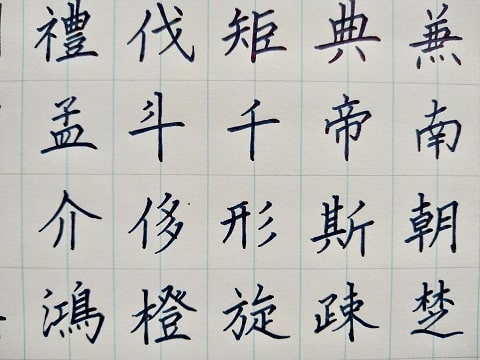 禮伐矩典兼
孟斗千帝南
介侈形斯朝
鴻橙旋疎楚